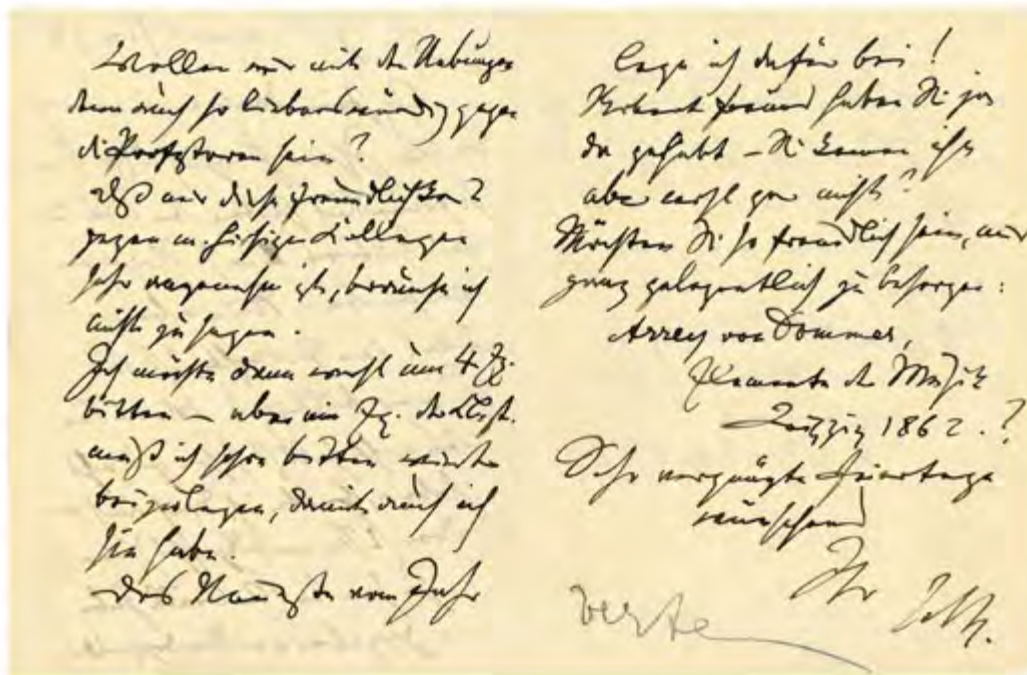 Wollen wir mit den Uebungen
denn auch so liebenswürdig gegen
die Professoren sein?
Daß mir diese Freundlichkeit
gegen m. hiesigen Collegen
sehr angenehm ist, brauche ich
nicht zu sagen.
Ich möchte dann wohl um 4
bitten – aber ein
muß ich schon bitten
beizulegen, damit auch ich
sie habe.
Das Neueste vom Jahr
lege ich dafür bei!
haben Sie ja
da gehabt – Sie kennen ihn
aber wohl gar nicht?
Möchten Sie so freundlich sein, mir
ganz gelegentlich zu besorgen:
Arrey von Dommer,
Elemente der Musik
Leipzig 1862.?
Sehr vergnügte Feiertage
wünschend
Ihr
verte